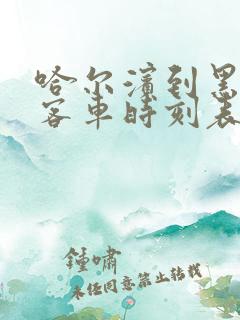 哈尔滨到黑
客车时刻表
锺啸
未经同意禁止转载